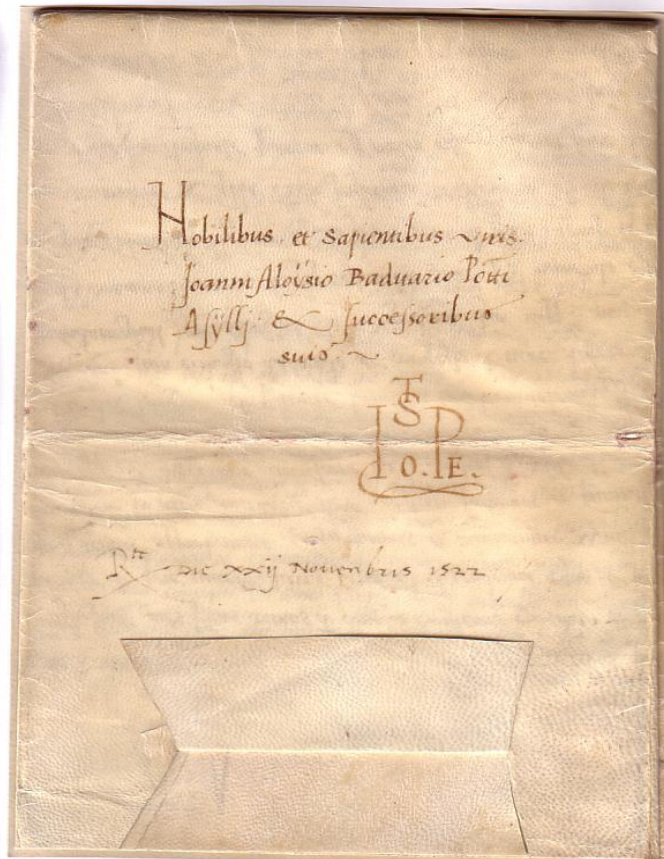 Nobilibus et Sapientibus Viris.
Joanni Aloÿsio Baduario Potti
Asÿllj & Successoribus
suis
T
S
I O. P E.
Rtt Die xxij Novembris 1522